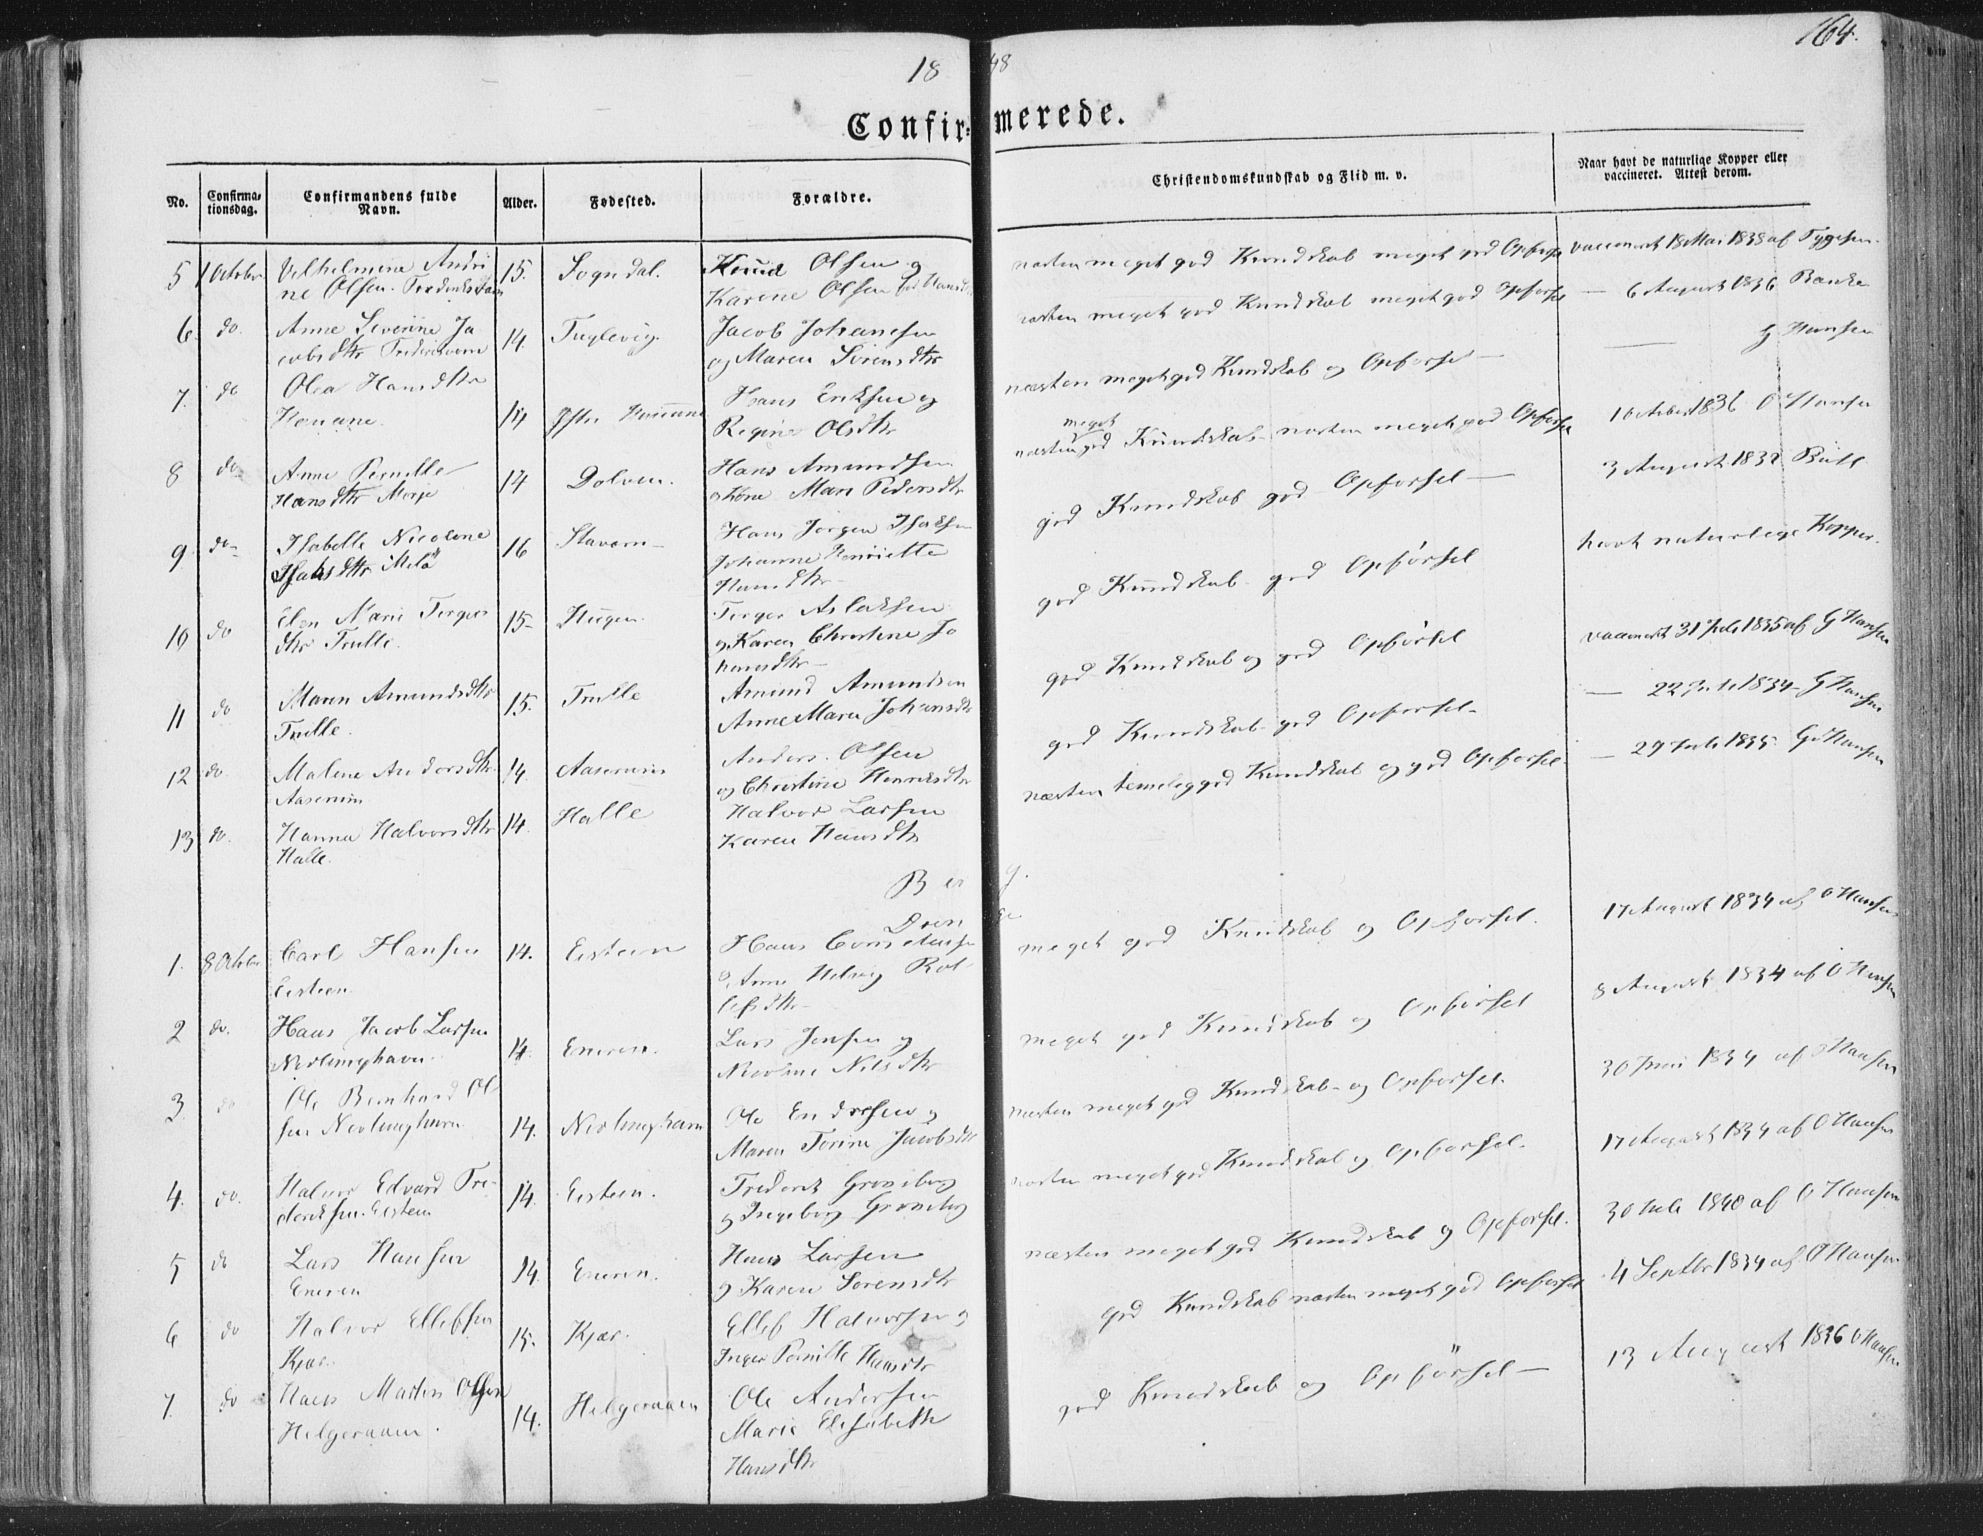 164.
18 48
Confirmerede.
No.
Confirmationsdag.
Confirmandens fulde Navn.
Alder.
Fødested.
Forældre.
Christendomskundskab og Flid m. v.
Naar havt de naturlige Kopper eller vaccineret. Attest derom.
5 1 Octobr Vilhelmine Andri 15. Sogndal. Knud Olsen og næsten meget god Kundskab meget god Opførsel vaccineret 18 Mai 1835 af Tygesen.
ne Olsen. Karine Olsen
6. do. Anne Severine Ja 14. Fuglevig. Jacob Johansen næsten meget god Kundskab meget god Opførsel — 6 August 1836 Banke
cobsdtr og Maren Sørensdtr
7. do Olea Hansdtr 14 Hans Eriksen og næsten meget god Kundskab og Opførsel — G Hansen
Regine Olsdtr
8 do Anne Pernille 14 Dolven. Hans Amundsen næsten meget god Kundskab næsten meget god Opførsel 1 October 1836 O Hansen
Hansdtr Marie Pedersdtr
9 do Isabelle Nicoline 16 Stavern Hans Jørgen god Kundskab god Opførsel — 3 August 1832
Johanne Henriette
Hansdtr
10 do Elen Marie Torgers 15 Torger Aslaksen god Kundskab god Opførsel havt naturlige Kopper.
dtr Trulle. og Karen Christine Jo
hansdtr
11 do Maren Amundsdtr 15. Trulle Amund Amundsen god Kundskab og god Opførsel vaccineret 31 Juli 1835 af G Hansen
Trulle. Anne Marie Johansdtr
12 do. Malene Andersdtr 14 Anders Olsen god Kundskab god Opførsel — 22 Juli 1834 G Hansen
og Christine Henriksdtr
13 do. Hanna Halvorsdtr 14. Halle Halvor Larsen næsten temelig god Kundskab og god Opførsel — 29 Juli 1835 G Hansen
Halle. Karen Hansdtr
1. 8 Octobr Carl Hansen 14. Eisteen Hans meget god Kundskab og Opførsel. 17 August 1834 af O Hansen
Eisteen Anne Helvig
2 do. Hans Jacob Larsen 14. Eneren. Lars Jensen og meget god Kundskab og Opførsel 8 August 1834 af O Hansen
Nevlunghavn Nicoline Nilsdtr
3. do Ole Bernhard Ol 14. Nevlunghavn Ole og næsten meget god Kundskab og Opførsel. 30 Juni 1834 af O Hansen
sen Nevlunghavn Maren Torine Jacobsdtr
4. do. Halvor Edvard Fre 14. Eisteen. Frederik næsten meget god Kundskab og Opførsel. 17 August 1834 af O Hansen
deriksen Eisteen og Ingeborg
5 do Lars Hansen 14. Eneren. Hans Larsen næsten meget god Kundskab og Opførsel. 30 Juli 1840 af O Hansen
Eneren og Karen Sørensdtr
6 do Halvor Ellefsen 15. Kjær. Ellef Halvorsen og god Kundskab næsten meget god Opførsel 4 Septbr 1834 af O Hansen
Kjær. Inger Pernille Hansdtr
7. do Hans Martin Olsen 14. Helgeraaen Ole Andersen god Kundskab og Opførsel — 13 August 1836 O Hansen
Helgeraaen. Marie Elisabeth
Hansdtr